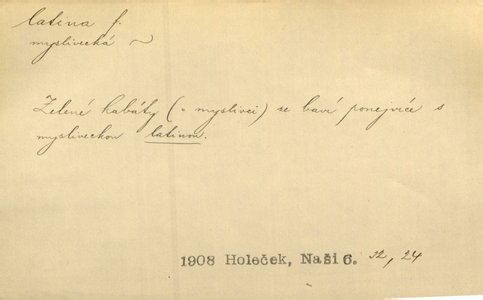 latina f.
myslivecká ~
Zelené kabáty (= myslivci) se baví ponejvíce s
mysliveckou latinou.
1908 Holeček, Naši 6. 32, 24